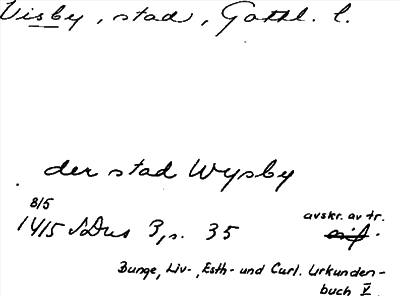 Visby, stad, Gottl. l.
der stad Wysby
8/5
1415 SDns 3, s. 35
avskr. av tr.
orig.
Bunge, Liv-, Esth- und Curl. Urkunden-
buch V.